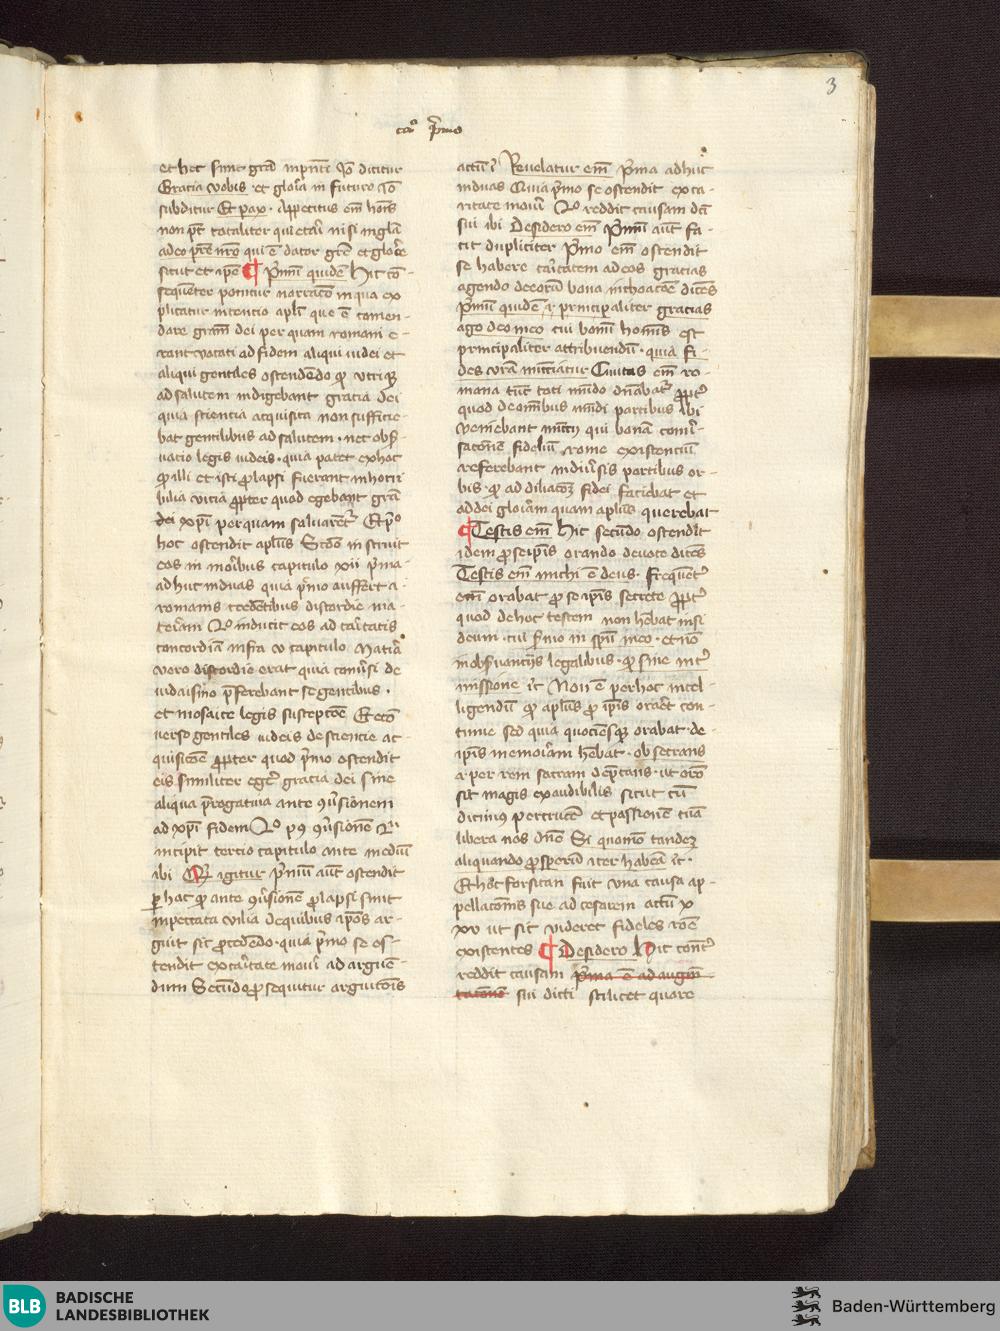 3
caº p̄mo
et hec sunt gr̄a in pn̄ti Iō dicitur
Gracia vobis et glor̄ia in futuro Iō
subditur Et pax · Appetitus em̄ hoīs
non pōt totaliter quietari nisi in gl̄ia
a deo pr̄e nr̄o qui ē dator gr̄e et glor̄ie
sicut et ip̄e ¶ P̄mū quidē Hic cō-
sequenter ponitur narracō in qua ex
plicatur intencio apl̄i que ē comen-
dare gram̄ dei per quam romani e-
rant vocati ad fidem aliqui iudei et
aliqui gentiles ostendēdo ꝙ utriqꝫ
ad salutem indigebant gracia dei
quia sciencia acquisita non sufficie-
bat gentilibus ad salutem · nec obs̄-
uacio legis iudeis · quia patet ex hoc
ꝙ illi et isti ꝓlapsi fuerant in hor̄i
bilia vicia ꝓpter quod egebant gr̄a
dei xp̄i per quam saluarēt Et pº
hoc ostendit apl̄us Scdō instruit
eos in mor̄ibus capitulo xii p̄ma
adhuc in duas quia p̄mo auffert a
romanis credētibus discordie ma-
ter̄iam 2º inducit eos ad car̄itatis
concordiā infra v capitulo Mater̄ia
vero discordie erat quia conuersi de
iudaismo p̄ferebant se gentibus ·
et mosaice legis suscepcōe Et ecō
uerso gentiles iudeis de sciencie ac-
quisicōe ꝓpter quod p̄mo ostendit
eis similiter egere gracia dei sine
aliqua p̄rogatiua ante ꝯuersionem
ad xp̄i fidem 2º pꝯ ꝯuersionē &
incipit tercio capitulo ante mediū
ibi Quid igitur P̄mū aut ostendit
ꝑ hac ꝙ ante ꝯuersionē ꝓlapsi sunt
in peccata vilia de quibus ip̄os ar-
guit sic ꝓcedēdo · quia p̄mo se os-
tendit ex car̄itate mouer̄i ad arguē-
dum Secūdo ꝓsequitur arguicōis
actū ibi Reuelatur em̄ P̄ma adhuc
in duas Quia p̄mo se ostendit ex ca-
ritate mouer̄i 2º reddit causam dc̄i
sui ibi Desidero em̄ P̄mū aut fa-
cit dupliciter P̄mo em̄ ostendit
se habere car̄itatem ad eos gracias
agendo de eor̄u bona inchoacōe dicēs
P̄mū quidē i. principaliter gracias
ago deo meo cui bonū hoīs est
principaliter attribuendū · quia fi-
des vr̄a nūciatur Ciuitas em̄ ro-
mana tūc toti mūdo dn̄abat̄ ꝓpt̄
quod de om̄ibus mūdi partibus ibi
veniebant multi qui bonā conu̅-
sacōne fidelium rome existenciū
referebant in diu̅sis partibus or-
bis · ꝙ ad dilatacōꝫ fidei faciebat et
ad dei glor̄iam quam aplūs querebat
¶ Testis em̄ Hic secūdo ostendit
idem ꝓ se ip̄is orando deuote dicēs
Testis em̄ michi ē deus · frequēt̄
em̄ orabat ꝓ se ip̄is secrete ꝓpt̄
quod de hoc testem non hēbat nisi
deum · cui ẜuio in spū meo · et nō
in obs̄uanciis legalibus · ꝙ sine int̄
missione i͡c Non ē per hoc intel-
ligendū ꝙ aplūs ꝓ ip̄is orar̄et con-
tinue sed quia quociēscūqꝫ orabat · de
ip̄is memor̄iam hēbat · obsecrans
i. per rem sacram dep̄cans · ut or̄o
sit magis exaudibilis sicut cū
dicimus per crucē et passionē tuā
libera nos dn̄e Si quomō tandeꝫ
aliquando ꝓsperū iter habeā i͡c ·
Et hoc forsitan fuit vna causa ap-
pellacōnis sue ad cesarem actū x
xv ut sic videret fideles rōe
existentes ¶ Desidero Hic cont̄
reddit causam p̄ma ē ad augm̄
tacōnē sui dicti scilicet quare
BLB BADISCHE
LANDESBIBLIOTHEK
Baden-Württemberg